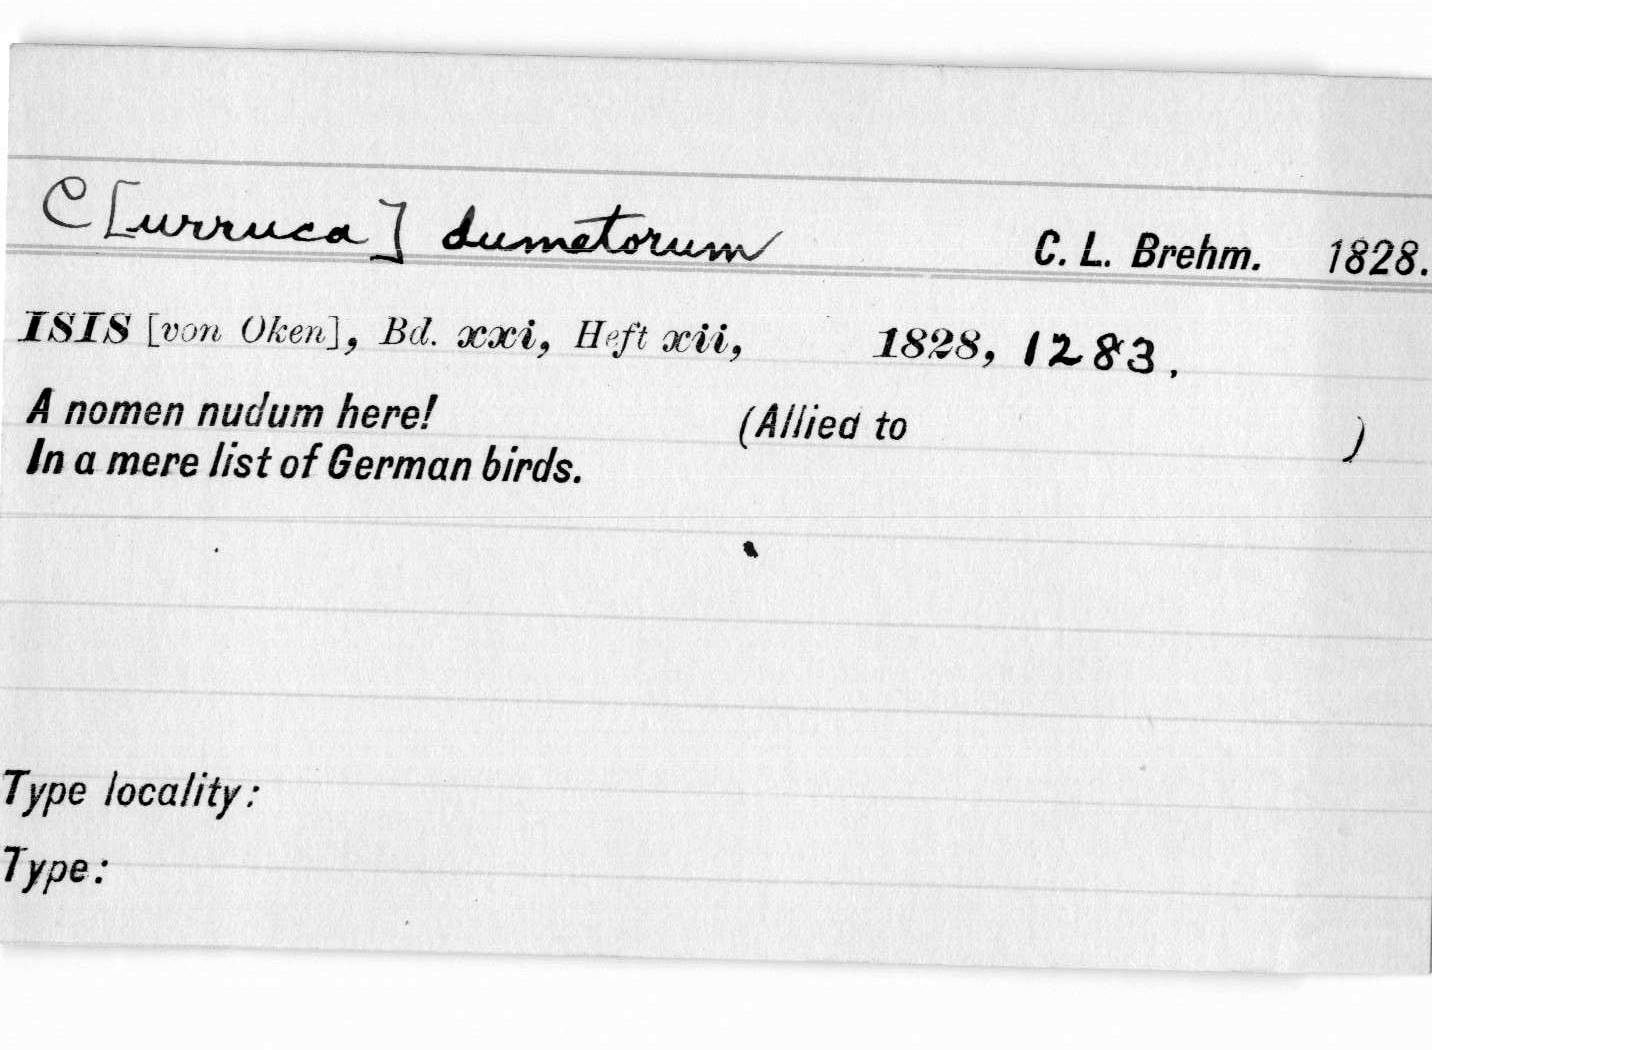 C[urruca] dumetorum C. L. Brehm. 1828.
ISIS [von Oken], Bd. xxi, Heft xii, 1828, 1283.
A nomen nudum here! (Allied to )
In a mere list of German birds.
Type locality:
Type: